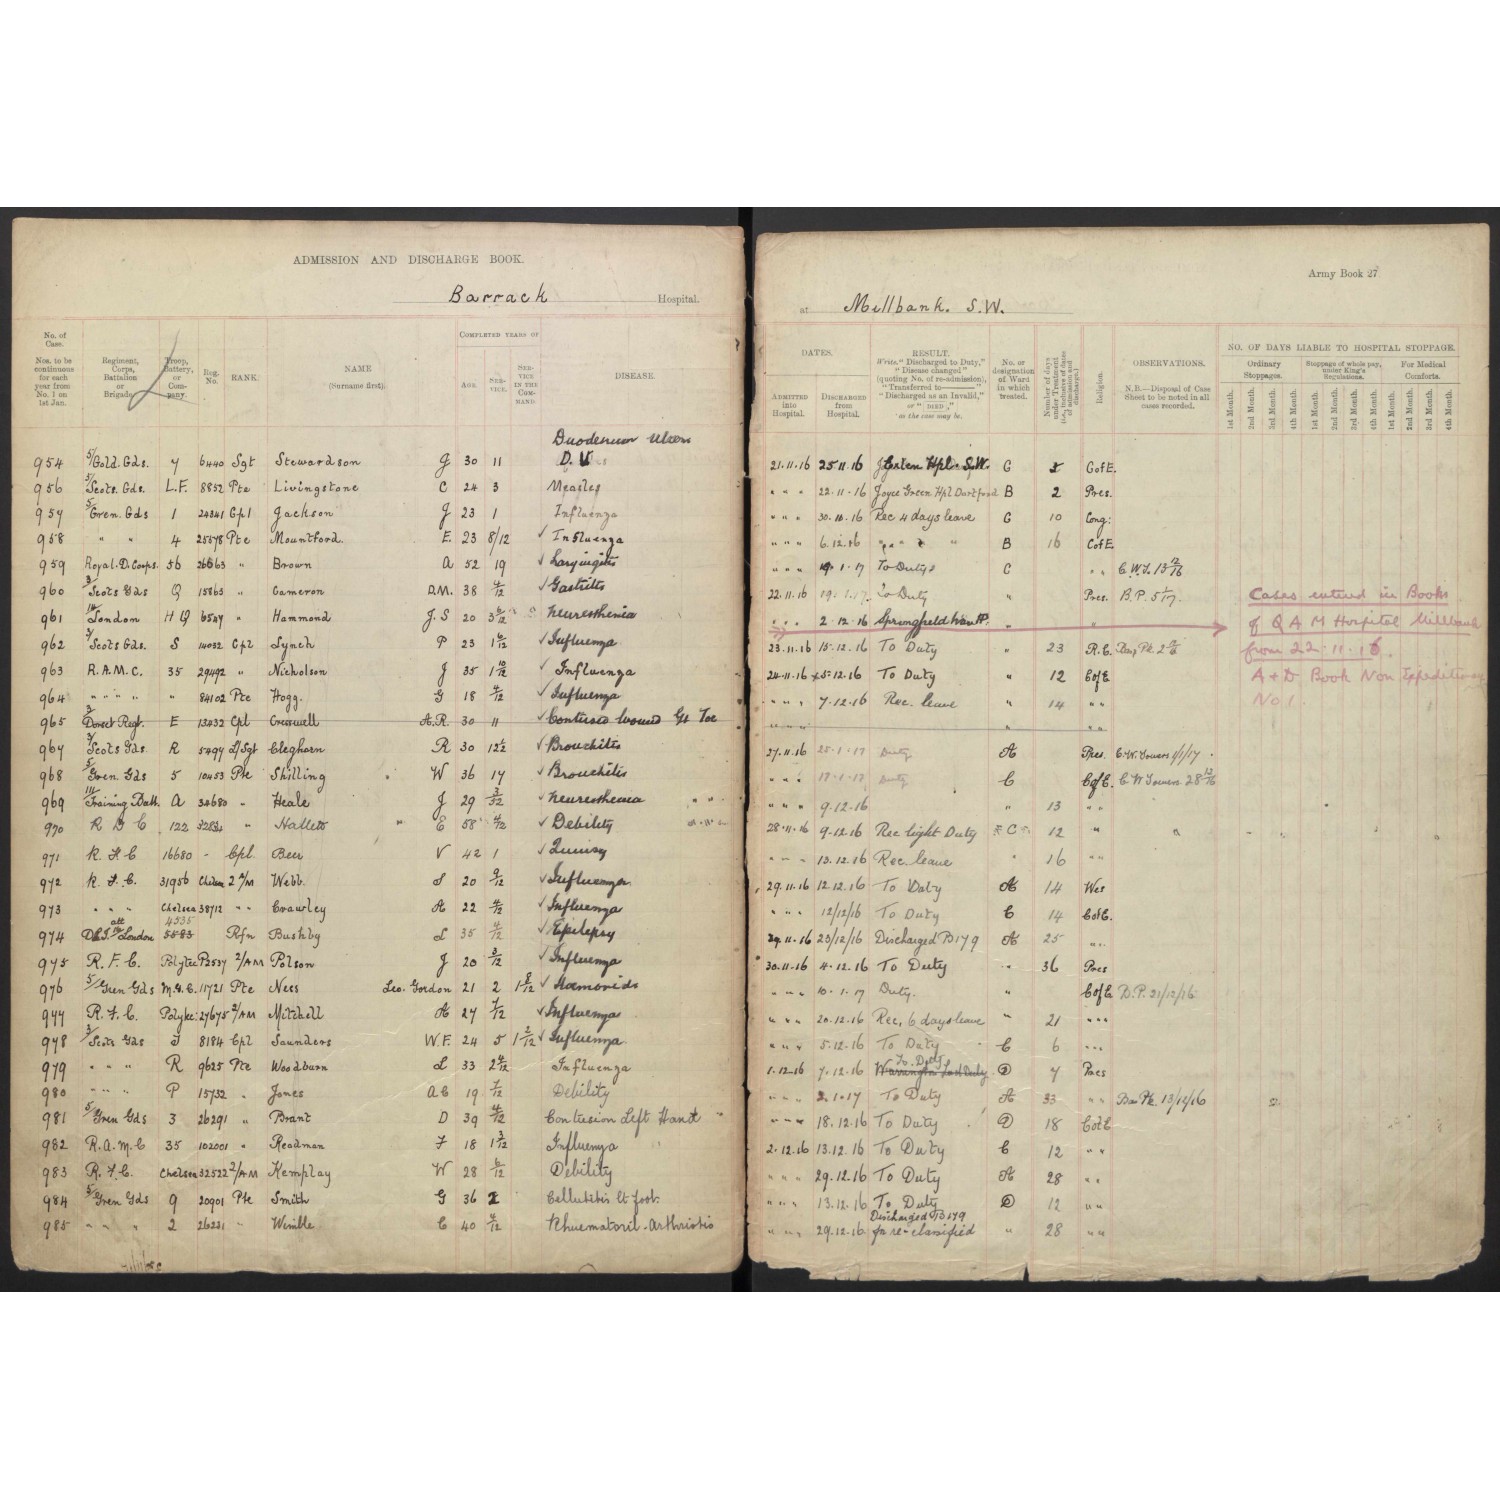 ADMISSION AND DISCHARGE BOOK.
Barrack Hospital.
No. of Case. Nos. to be continuous for each year from No. 1 on 1st Jan.
Regiment, Corps, Battalion or Brigade.
Troop, Battery, or Company.
Reg. No.
RANK.
NAME (Surname first).
COMPLETED YEARS OF
AGE.
SERVICE.
SERVICE IN THE COMMAND.
DISEASE.
Duodenum Ulcers
954 5/Gold. Gds. 7 6440 Sgt Stewardson G 30 11 D. U
956 5/Scots. Gds. L.F. 8852 Pte Livingstone C 24 3 Measles
957 5/Gren. Gds 1 24341 Cpl Jackson J 23 1 Influenza
958 " " 4 25578 Pte Mountford. E. 23 8/12 Influenza
959 Royal. D. Corps. 56 26663 " Brown A 52 19 Laryingitis
960 3/Scots Gds Q 15863 " Cameron D.M. 38 Gastritis
961 London H Q 6547 " Hammond J.S 20 Neuresthenia
962 3/Scots Gds. S 14032 Cpl Lynch P 23 Influenza
963 R.A.M.C. 35 29492 " Nicholson J 35 1 10/12 Influenza
964 " " " " " 84102 Pte Hogg. G 18 Influenza
965 Dorset Regt. E 13032 Cpl Cresswell A.R. 30 11 Contused Wound Gt Toe
967 3/Scots Gds. R 5497 L/Sgt Cleghorn R 30 Bronchitis
968 5/Gren. Gds 5 10453 Pte Shilling W 36 17 Bronchitis
969 Training Batt. A 34680 " Heale J 29 Neuresthenia
970 R D C 122 " Hallett E 58 Debility
971 R. F. C 16680 - Cpl. Beer V 42 1 Quinsy
972 R. F. C. 31956 Chelsea 2 A/M Webb. S 20 Influenza.
973 " " " Chelsea 38712 " " Crawley A 22 Influenza
974 London 4535 5583 Rfn Bushby L 35 Epilepsy
975 R. F. C. P2537 2/AM Polson J 20 3/12 Influenza
976 5/Gren Gds M.G.C. 11721 Pte Nees Leo. Gordon 21 2 Hamoroids
977 R. F. C. 27675 2/AM Mitchell A 27 Influenza
978 3/Scots Gds J 8184 Cpl Saunders W.F. 24 5 Influenza
979 " " " R 9625 Pte Woodburn L 33 Influenza
980 " " " P 15732 " Jones A C 19 Debility
981 5/Gren Gds 3 26291 " Brant D 39 Contusion Left Hand
982 R.A.M.C 35 102001 " Readman F 18 1 3/12 Influenza
983 R. F. C. Chelsea 32522 2/AM Kemplay W 28 Debility
984 5/Gren Gds 9 20901 Pte Smith G 36 2 Cellulitis Lt foot.
985 " " " 2 26221 " Wimble C 40 Rhuematoid-Arthristis
Army Book 27
at Millbank. S.W.
DATES.
ADMITTED into Hospital.
DISCHARGED from Hospital.
RESULT. Write. "Discharged to Duty," "Disease changed" (quoting No. of re-admission), "Transferred to———" "Discharged as an Invalid," or "DIED," as the case may be.
No. or designation of Ward in which treated.
Number of days under Treatment (i.e., inclusive of dates of admission and discharge.)
Religion.
OBSERVATIONS. N.B.—Disposal of Case Sheet to be noted in all cases recorded.
NO. OF DAYS LIABLE TO HOSPITAL STOPPAGE.
Ordinary Stoppages.
Stoppage of whole pay, under King's Regulations.
For Medical Comforts.
1st Month. 2nd Month. 3rd Month. 4th Month. 1st Month. 2nd Month. 3rd Month. 4th Month. 1st Month. 2nd Month. 3rd Month. 4th Month.
21.11.16 25.11.16 Hpl. S.W. C 5 C of E.
" " " 22.11.16 Joyce Green Hpl Dartford B 2 Pres.
" " " 30.11.16 Rec 4 days leave C 10 Cong:
" " " 6.12.16 " " " " B 16 C of E.
" " " 19.1.17 To Duty C " " C.W.T. 13
22.11.16 19.1.17. To Duty " Pres. B.P. 5
" " " 2.12.16 Springfield War H. " "
23.11.16 15.12.16 To Duty " 23 R.C.
24.11.16 5.12.16 To Duty " 12 C of E
" " " 7.12.16 Rec. leave " 14 " "
" " " " " "
27.11.16 25.1.17 Duty A Pres. C.W. Towers 1/1/17
" " " 17.1.17 Duty C C of E. C W Towers 28
" " " 9.12.16 " 13 " "
28.11.16 9.12.16 Rec light Duty C 12 "
" " " 13.12.16 Rec. leave " 16 " "
29.11.16 12.12.16 To Duty A 14 Wes
" " " 12/12/16 To Duty C 14 C of E.
29.11.16 23/12/16 Discharged B179 A 25 " "
30.11.16 4.12.16 To Duty " 36 Pres
" " " 10.1.17 Duty. " C of E B.P. 21/12/16
" " " 20.12.16 Rec, 6 days leave " 21 " " "
" " " 5.12.16 To Duty C 6 " " "
1.12.16 7.12.16 To Duty D 7 Pres
" " " 2.1.17 To Duty A 33 " " 13/12/16
" " " 18.12.16 To Duty D 18 C of E
2.12.16 13.12.16 To Duty C 12 " "
" " " 29.12.16 To Duty A 28 " "
" " " 13.12.16 To Duty D 12 " "
Discharged B179
" " " 29.12.16. for re-classified " 28 " "
Cases entered in Books
of Q A M Hospital Millbank
from 22.11.16.
A & D Book Non Expeditionary
No 1.